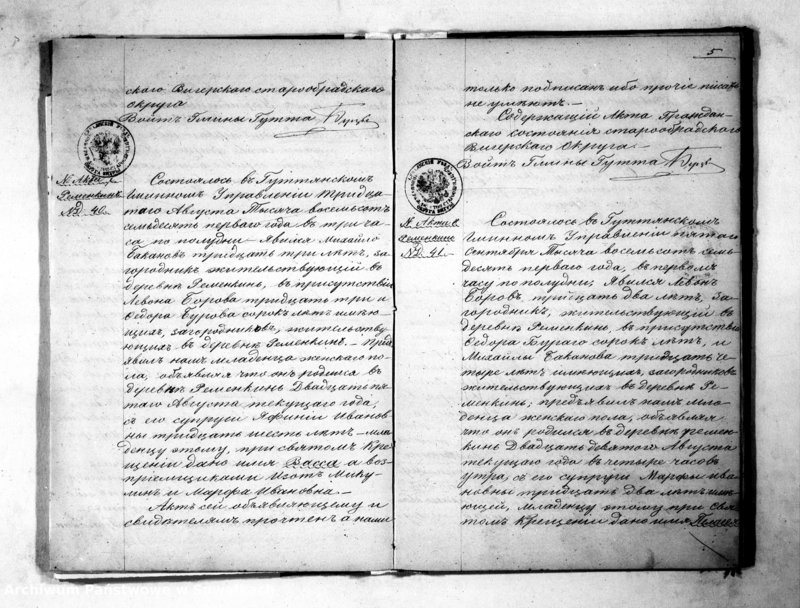 скаго Вигерскаго старообрядскаго
округа
Войтъ Гмины Гутта
Состоялось въ Гуттянскомъ
Гминномъ Управленіи тридца
таго Августа тысяча восемьсотъ
семьдесятъ перваго года въ три ча
са по полудни. Явился Михайло
Бакановъ тридцать три лѣтъ, за
городникъ жительствующій въ
деревнѣ Ременкинѣ, въ присутствіи
Левона Борова тридцать три и
Ѳедора Бурова сорокъ лѣтъ имѣю
щихъ, загородниковъ, жительству
ющихъ въ деревнѣ Ременкинѣ. Предъ
явилъ намъ младенца женскаго по
ла, объявляя что онъ родился въ
деревнѣ Ременкинѣ двадцать пя
таго Августа текущаго года,
съ его супруги Иванов
ны тридцать шесть лѣтъ мла
денцу этому, при святомъ Кре
щеніи дано имя Васса а вос
пріемщиками были Мику
линъ и Марфа Ивановна.
Актъ сей объявляющему и
свидѣтелямъ прочтенъ а нами
№ Акта
Ременкинь
№ 40.
5
только подписанъ ибо прочіе писать
не умѣютъ.
Содержащій Акта Граждан
скаго состоянія старообрядскаго
Вигерскаго Округа.
Войтъ Гмины Гутта
№ Акта
Ременкинь
№ 41.
Состоялось въ Гуттянскомъ
Гминномъ Управленіи пятаго
Сентября тысяча восемьсотъ семь
десятъ перваго года, въ первомъ
часу по полудни; Явился Левонъ
Боровъ, тридцать два лѣтъ, за
городникъ, жительствующій въ
деревнѣ Ременкинѣ, въ присутствіи
Ѳедора Бураго сорокъ лѣтъ, и
Михайлы Баканова тридцать че
тыре лѣтъ имеющихъ, загородниковъ
жительствующихъ въ деревнѣ Ре
менкинѣ; предъявилъ намъ мла
денца женскаго пола, объявляя
что онъ родился въ деревнѣ Ремен
кинѣ двадцать девятаго Августа
текущаго года въ четыре часовъ
утра, съ его супруги Марфы Ива
новны тридцать два лѣтъ имѣ
ющей, младенцу этому при Свя
томъ Крещеніи дано имя
Archiwum Państwowe w Suwałkach